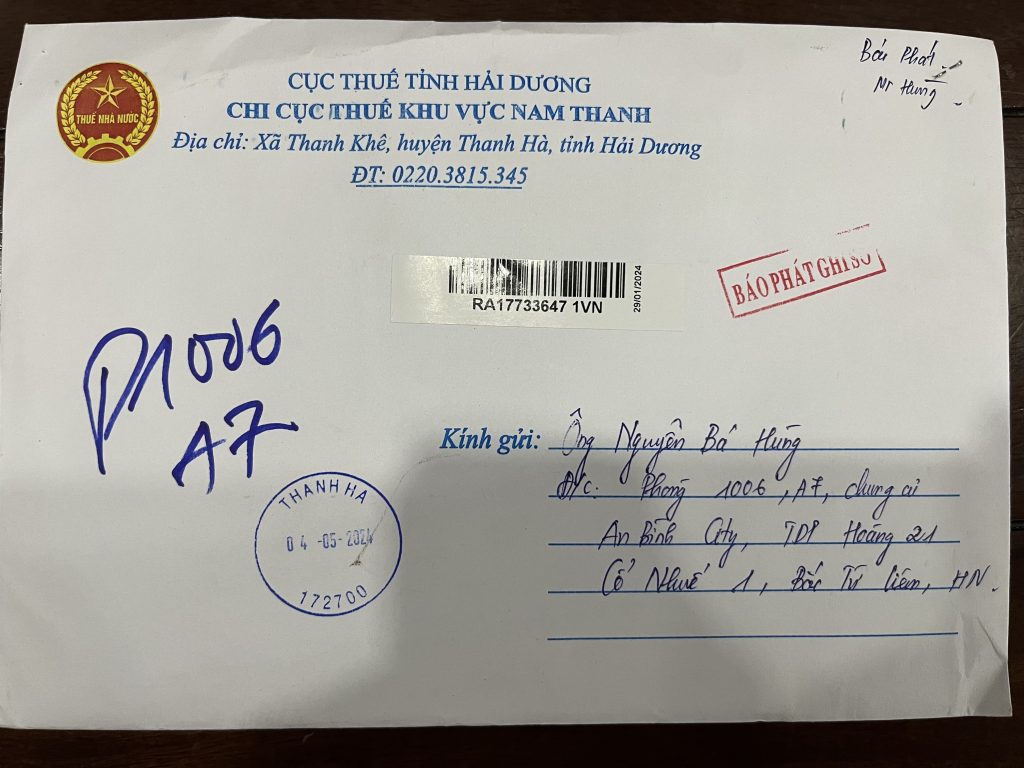 CỤC THUẾ TỈNH HẢI DƯƠNG
CHI CỤC THUẾ KHU VỰC NAM THANH
Địa chỉ: Xã Thanh Khê, huyện Thanh Hà, tỉnh Hải Dương
ĐT: 0220.3815.345
THUẾ NHÀ NƯỚC
Báo Phát
Mr Hưng
RA17733647 1VN
29/01/2024
BÁO PHÁT GHI SỐ
P1006
A7
THANH HA
04-05-2024
172700
Kính gửi: Ông Nguyễn Bá Hưng
Đ/c: Phòng 1006, A7, chung cư
An Bình City, TDP Hoàng 21
Cổ Nhuế 1, Bắc Từ Liêm, HN.